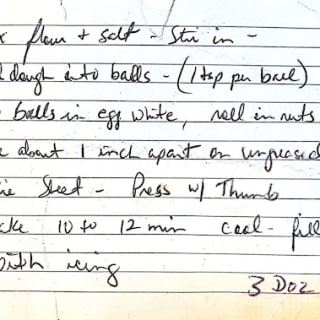 x flour + salt - Stir in -
l dough into balls - (1 tsp per ball)
balls in egg white, roll in nuts
e about 1 inch apart on ungreased
ie Sheet - Press w/ Thumb
ake 10 to 12 min cool - fill
with icing
3 Doz